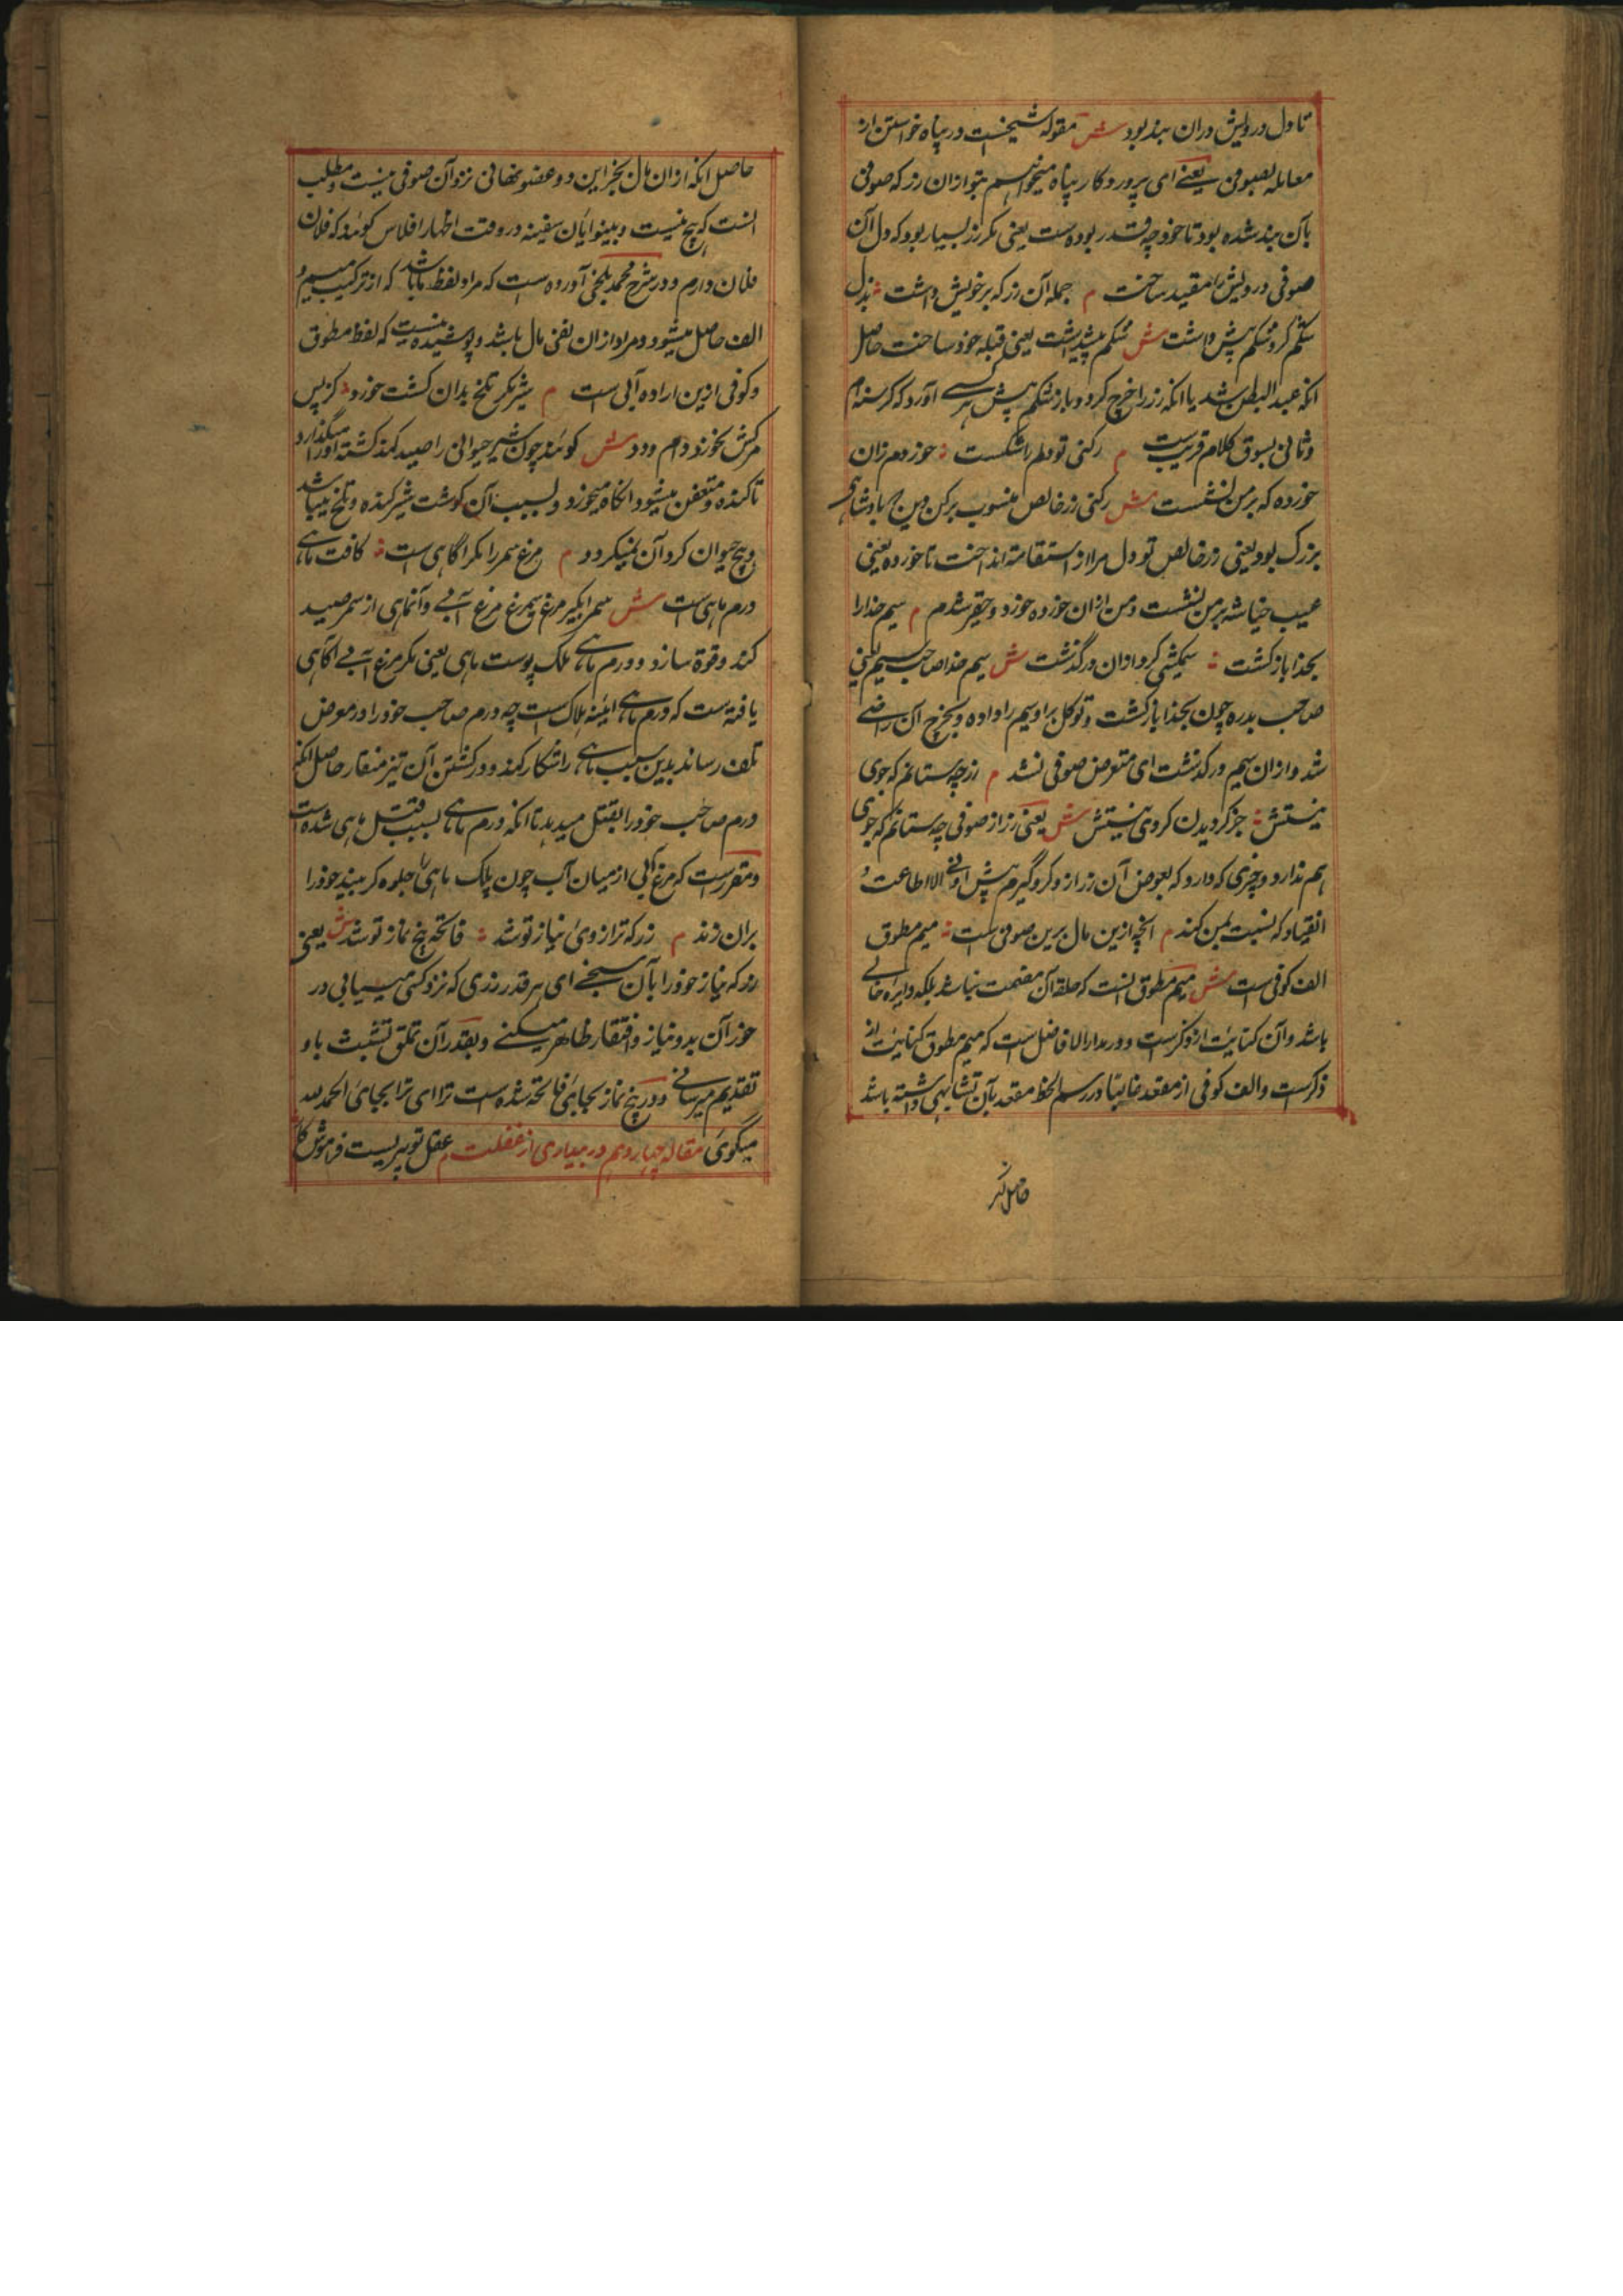 تا دل درویش دران بند بود ش مقوله شیخست در پناه خواستن از
معامله بصوفی یعنی ای پروردگار پناه میخواهیم بتو ازان زر که صوفی
بآن بند شده بود تا خود چه قدر بوده است یعنی مگر زر بسیار بود که دل آن
صوفی درویش را مقید ساخت م جمله آن زر که بر خویش داشت بذل
شکم کرد و شکم پیش داشت ش شکم پیشداشت یعنی قبله خود ساخت حاصل
انکه عبد البطن شد یا انکه زر را خرج کرد و باز شکم پیش هر کسی آورد که گرسنه ام
و ثانی بسوق کلام قریبست م رکنی تو دلم را شکست خورده م زان
خورده که بر من نشست ش رکنی زر خالص منسوب برکن دین که بادشاهی
بزرک بود یعنی زر خالص تو دل مرا از استقامته انداخت تا خورده یعنی
عیب خیانته بر من نشست و من ازان خورده خورد و حقیر شدم م سیم خدارا
بخدا باز کشت سیمکشی کرد و ازان درگذشت ش سیم خدا صاحب سیم یعنی
صاحب بدره چون بخدا باز کشت و توکل براو سیم را داده و بخرج آن راضے
شد و ازان سیم درگذشت ای متعرض صوفی نشد م زر چه ستانم که جوی
نیستش جز گرویدن گروی نیستش ش یعنی زر از صوفی چه ستانم که جوی
هم ندارد و چیزی که دارد که بعوض آن زر ازو گرو گیرم پیش او نے الا اطاعت و
انقیاد که نسبت بمن کند م انچه ازین مال برین صوفی است میم مطوق
الف کوفی است ش میم مطوق انست که حلقه آن مضمت نباشد بلکه دایره خالے
باشد و آن کنایت از ذکرست و در مدار الافاضل است که میم مطوق کنایت از
ذکرست و الف کوفی از مقعد غالبا در رسم الخط مقعد بآن تشابهی داشته باشد
حاصل انکه
حاصل انکه ازان مال بجز این دو عضو نهانی نزد آن صوفی نیست و مطلب
انست که هیچ نیست و بینوایان سفینه در وقت اظهار افلاس کویند که فلان
فلان دارم و در شرح محمد بلخی آورده است که مراد لفظ ما باشد که از ترکیب میم و
الف حاصل میشود و مراد ازان نفی مال باشد و پوشیده نیست که لفظ مطوق
و کوفی ازین اراده آبی است م شیر مگر تلخ بدان کشت خورد کز پس
مرکش نخورد دام و دد ش کویند چون شیر حیوانی را صید کند کشته اورا میگذارد
تا کنده و متعفن میشود انکاه میخورد و بسبب آن کوشت شیر کنده و تلخ میباشد
و هیچ حیوان کرد آن نمیگردد م مرغ سمر را مکر اگاهی است کافت ماهے
درم ماهی است ش سمر ابگیر مرغ سمر مرغ آبے و آنماهی از سمر صید
کند و قوة سازد و درم ماهے فلک پوست ماهی یعنی مکر مرغ آبے اگاهی
یافته است که درم ماهے ائینه هلاک است چه درم صاحب خود را در معرض
تلف رساند بدین سبب ماهے را شکار کند و در کشتن آن تیز منقار حاصل انکه
درم صاحب خود را بقتل میدهد تا انکه درم ماهے بسبب قتل ماهی شده است
و مقررست که مرغ آبی از میان آب چون پلک ماهی را جلوه گر بیند خود را
بران زند م زر که ترازوی نیاز تو شد فاتحه پنج نماز تو شد ش یعنی
زر که نیاز خود را بآن سنجے ای هر قدر زری که نزد کسی مییابی در
خور آن بدو نیاز و افتقار ظاهر میکنے و بقدر آن تملق تشبث باو
تقدیم میرسانے و در پنج نماز بجای فاتحه شده است ترا ای ترا بجای الحمد لله
میگوی مقاله چهاردهم در بیداری از غفلت م عقل تو پیریست فراموش کار